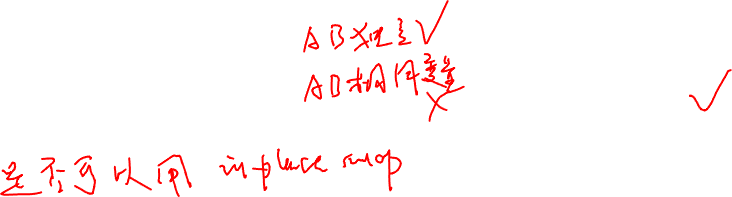 AB独立✓
AB相同变量
×
✓
是否可以用 in-place swap